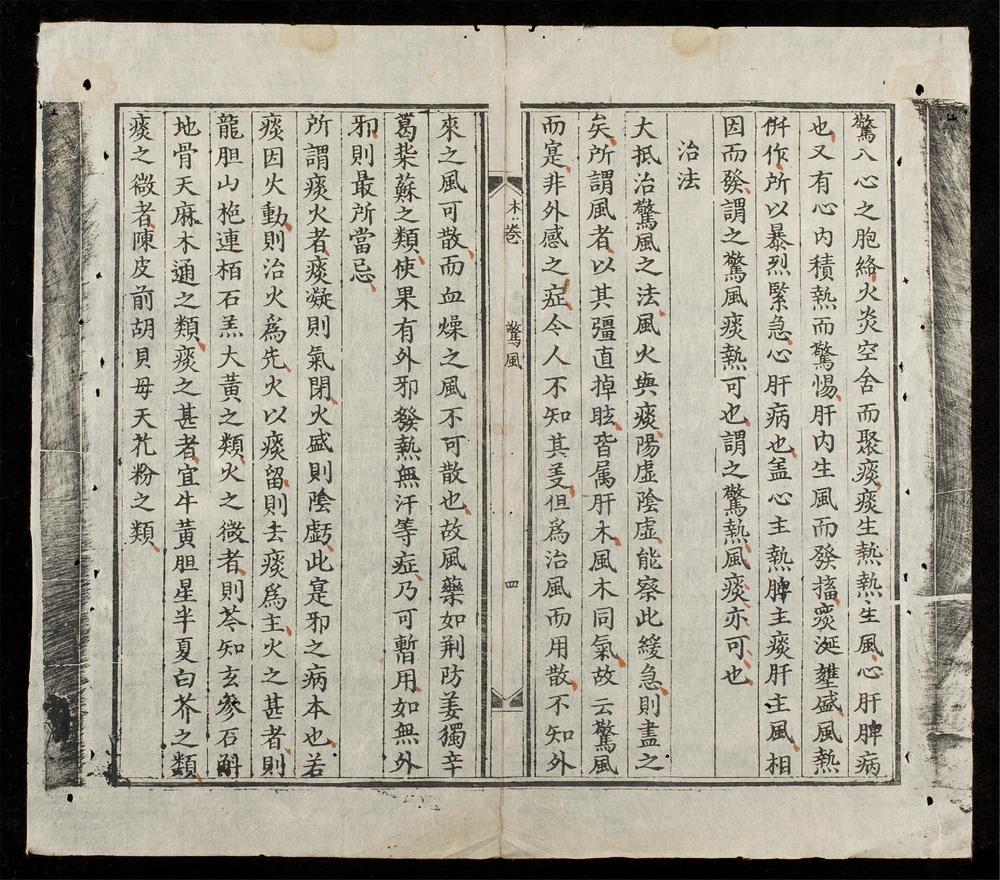 驚入心之胞絡火炎空舍而聚痰痰生熱熱生風心肝脾病
也又有心内積熱而驚惕肝内生風而發搐痰涎壅盛風熱
併作所以暴烈緊急心肝病也盖心主熱脾主痰肝主風相
因而發謂之驚風痰熱可也謂之驚熱風痰亦可也
治法
大抵治驚風之法風火與痰陽虛陰虛能察此緩急則盡之
矣所謂風者以其彊直掉眩皆属肝木風木同氣故云驚風
而寔非外感之症今人不知其㕛但爲治風而用散不知外
木 卷 驚風 四
來之風可散而血燥之風不可散也故風藥如荆防羌獨辛
葛柴蘇之類使果有外邪發熱無汗等症乃可暫用如無外
邪則最所當忌
所謂痰火者痰凝則氣閉火盛則陰虧此寔邪之病本也若
痰因火動則治火爲先火以痰留則去痰爲主火之甚者則
龍胆山梔連栢石羔大黄之類火之微者則芩知玄參石斛
地骨天麻木通之類痰之甚者宜牛黄胆星半夏白芥之類
痰之微者陳皮前胡貝母天花粉之類